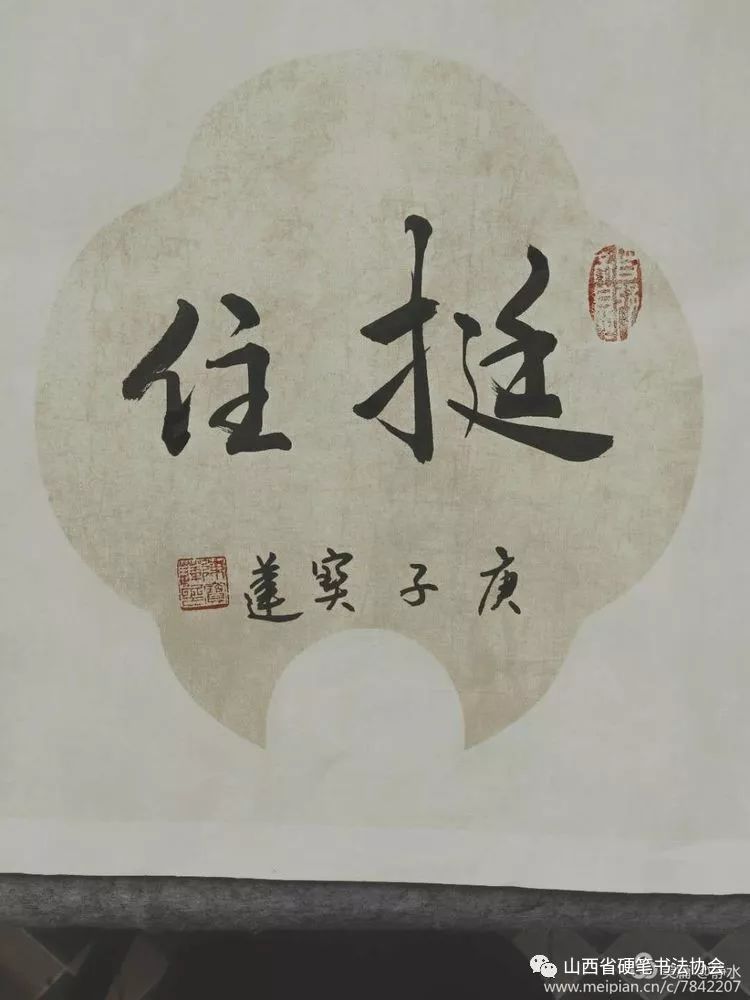 挺住
庚子寶蓮
山西省硬笔书法协会
www.meipian.cn/c/7842207